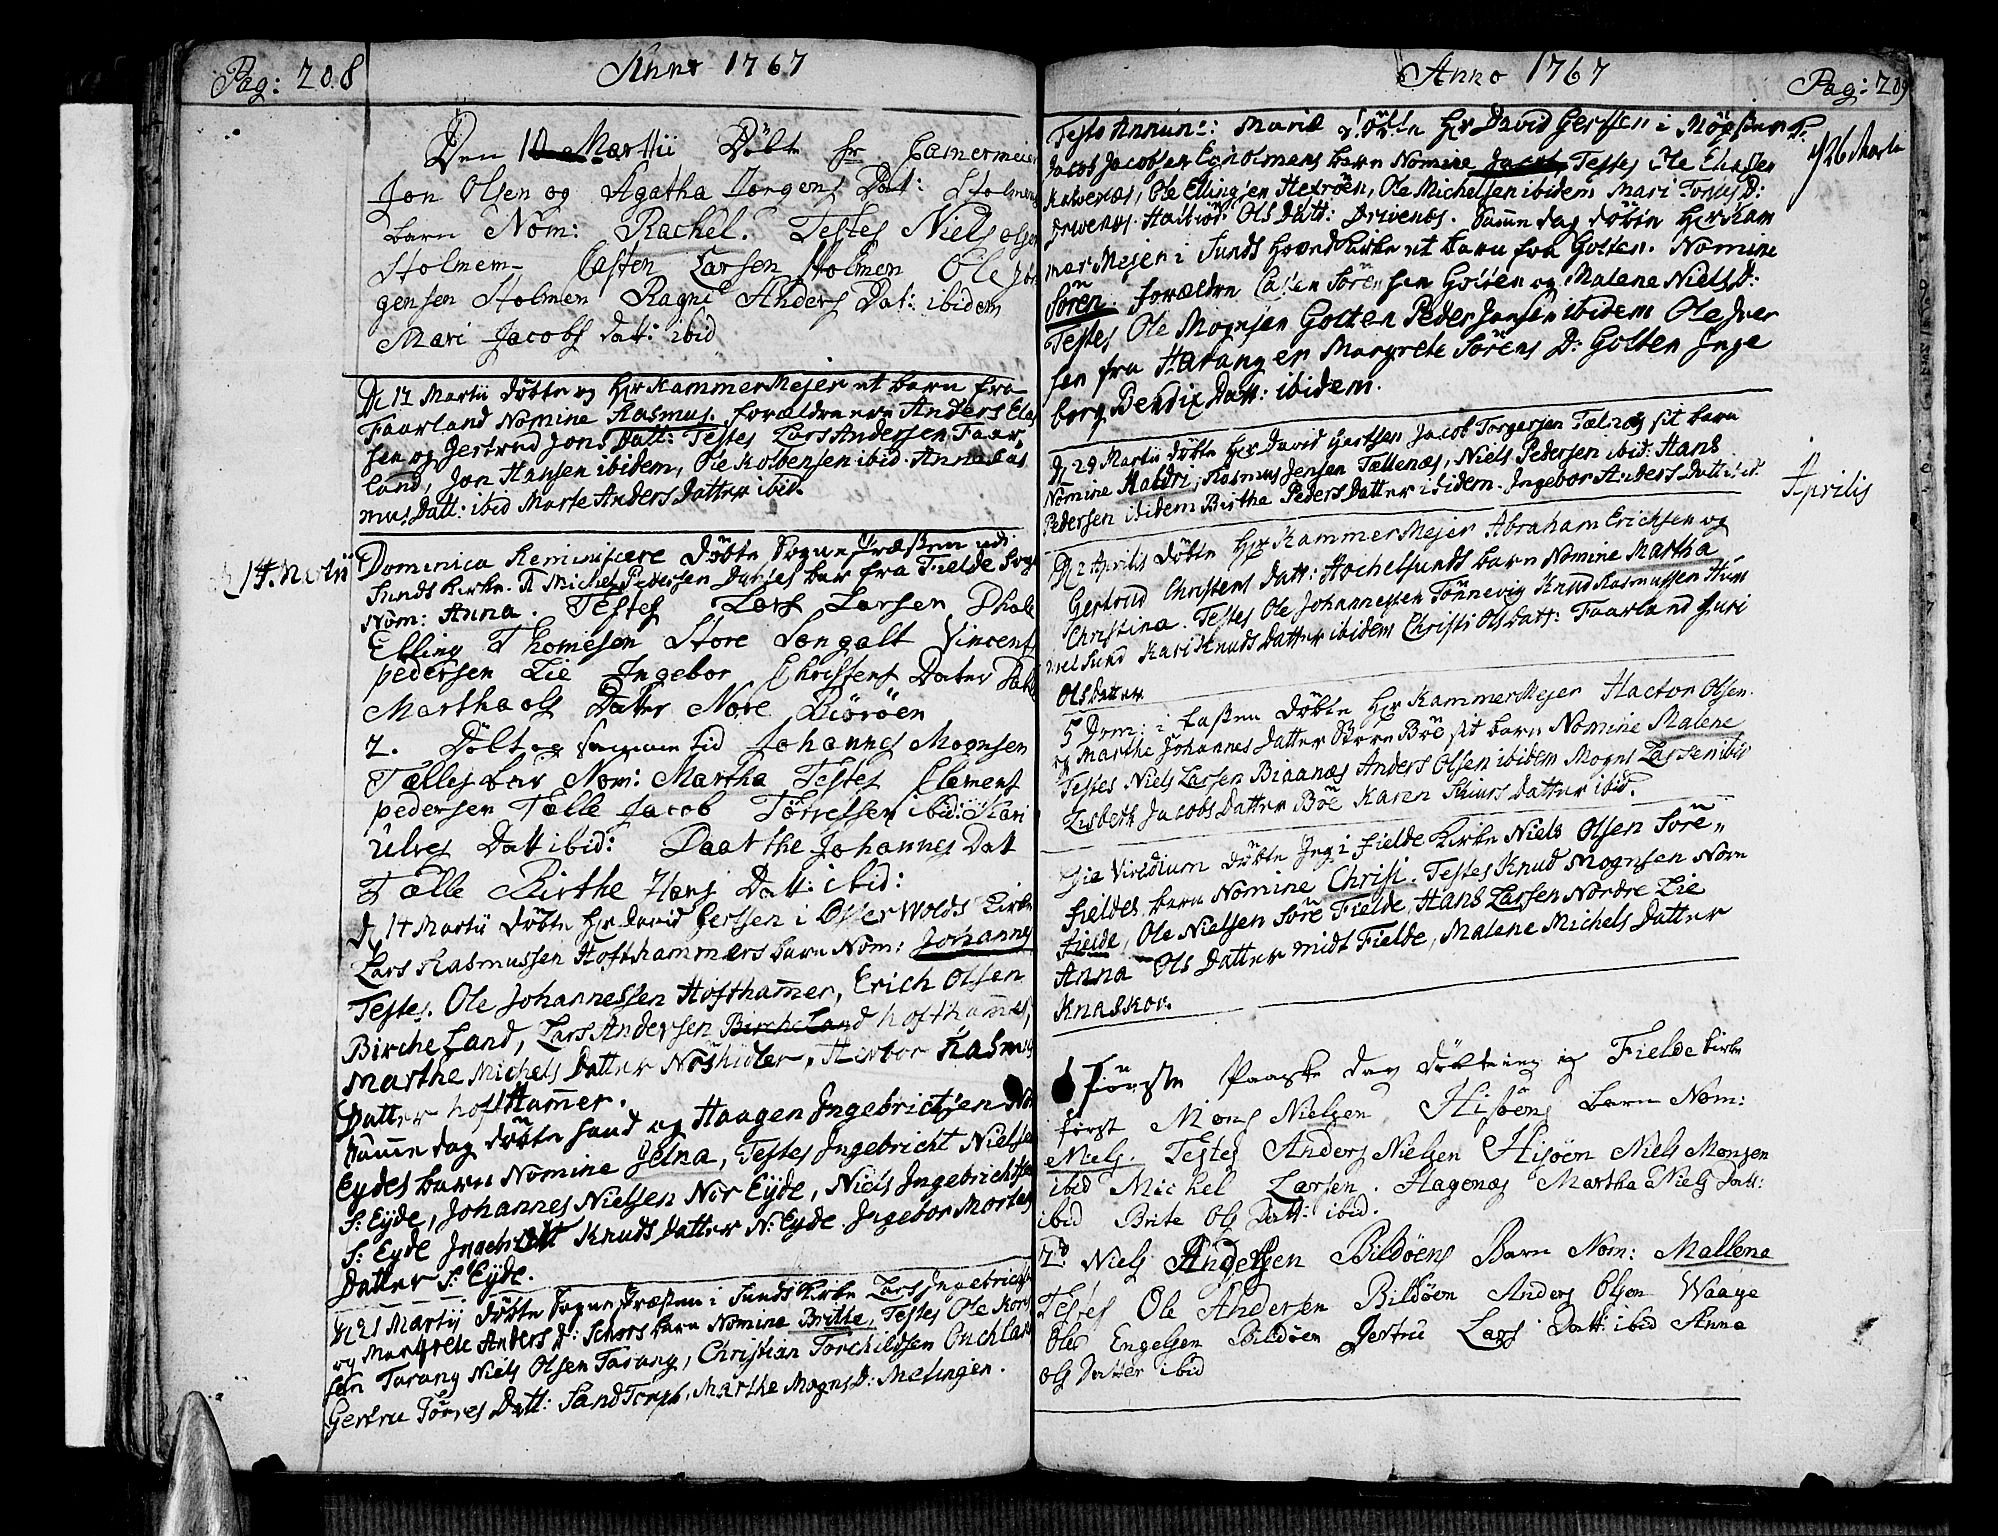 Pag: 208 Anno 1767
Den 10 Martii Döbte hr Camermeier
Jon Olsen og Agatha Jörgens Dat: Stolmens
barn Nom: Rachel. Testes Niels olsen
Stolmem Casten Larsen Stolmen Ole Jör
gensen Stolmen Ragni Anders Dat: ibidem
Mari Jacobs Dat: ibid
D 12 Martii döbte og Hr KammerMejer et barn fra
Faarland Nomine Rasmus. forældrene Anders Elas
sen og Gertrud Jons Datt: Testes Lars Andersen Faar,
land, Jon Hansen ibidem, Ole Kolbensen ibid. Anna Ras
mus Datt: ibid Marte Anders Datter ibid.
14. Martii
Dominica Reminiscere döbte Sogne Præsten udi
Sunds Kirke. Michel Pedersen bar fra Fielde Sogn
Nom: Anna. Testes Lars Larsen Dhale
Elling Thomesen Store Songalt Vincent
pedersen Lie Ingebor Christens Dater Dale
Martha ols Dater Nore Biöröen
2. Dölt og samme tid Johannes Mognsen
Tælles bar Nom: Martha Testes Clement
pedersen Tælle Jacob Törressen ibid: Kari
Ulves Datt ibid: Daarthe Johannes Dat
Tælle Birthe Hans Datt: ibid:
D 14 Martii döbte Hr David Gerssen i Östervolds Kirke
Lars Rasmussen Hofthammers barn Nom: Johannes
Testes. Ole Johannessen Hofthamer, Erich Olsen
Bircheland, Lars Andersen Bircheland hofthammer,
Marthe Michels Datter Nöshidler, Herbor Rasmus
Datter hoftHamer.
Samme dag döbte hand og Haagen Ingebrictsen Nör
Eydes barn Nomine Gelna, Testes Ingebricht Nielsen
S: Eyde, Johannes Nielsen Nör Eyde, Niels Ingebrichtsen
S: Eyde Ingebricht Knuds Datter N: Eyde Ingebor Mortens
Datter S: Eyde.
D 21 Martij döbte Sogne Præsten i Sunds Kirke Lars Ingebrictsen
og Margrete Anders D: Schors barn Nomine Britte, Testes Ole Kors
sen Tarang Niels Olsen Tarang, Christian Torchildsen Onchland
Gertru Törres Datt: SandTorph, Marthe Mogns D: Melingen.
Anno 1767 Pag: 209
Festo Annun: Mariæ döbte Hr David Gerssen i Möester K:
26 Martii
Jacob Jacobsen Egholmens barn Nomine Jacob, Testes Ole Eliassen
Kalvenæs, Ole Ellingsen Hexröen, Ole Michelsen ibidem Mari Torres D:
Drivenæs. Halvör Ols Datt: Drivenæs. Samme dag döbte Hr Kam
mer Mejer i Sunds Hoved Kirke et barn fra Golten. Nomine
Sören. forældre Casten Sörensen Golten og Malene Niels D:
Testes Ole Mognsen Golten Peder Jansen ibidem Ole Iver
sen fra Hatanger Margrete Sörens D: Golten Inge
borg Bendix Datt: ibidem.
D 29 Martii döbte Hr David Gertsen Jacob Torgersen Tælnæs sit barn
Nomine Haldri, Rasmus Jensen Tællenæs, Niels Pedersen ibid: Hans
Pedersen ibidem Birthe Peders Datter ibidem. Ingebor Anders Datt ibid.
Aprilis
D 2 Aprilis döbte Hr KammerMejer Abraham Erichsen og
Gertrud Christens Datt: Hochelsunds barn Nomine Martha
Christina. Testes Ole Johannessen Tönnevig Knud Rasmussen Huus
vel Sund Kari Knuds Datter ibidem Christi Ols Datt: Faarland Guri
Ols Datter
5 Dom: i fasten döbte Hr KammerMejer Hactor Olsen
og Marthe Johannes Datter Store Böe sit barn Nomine Malene
Testes Niels Larsen Biaanæs Anders Olsen ibidem Mogns Larsen ibid
Lisbeth Jacobs Datter Böe Karen Siurs Datter ibid.
Die Viredium döbte Jeg i Fielde Kirke Niels Olsen Söre,,
fieldes barn Nomine Christi. Testes Knud Mognsen Nore
fielde, Ole Nielsen Söre Fielde, Hans Larsen Nordre Lie
Anna Ols Datter midt Fielde, Malene Michels Datter
Knaskov.
Förste Paaske dag döbte ieg i Fielde kirke
först Mons Nielsen Hisöens barn Nom:
Niels. Testes Anders Nielsen Hisöen Niels Monsen
ibid Michel Larsen. Hagenæs Martha Niels Datt:
ibid Brite Ols Datt: ibid.
2: Niels Andersen Bildöens Barn Nom: Mallena
Testes Ole Andersen Bildöen Anders Olsen Waage
Ole Engelsen Bildöen Jertru Lars Datt: ibid Anna
ols Datter ibid